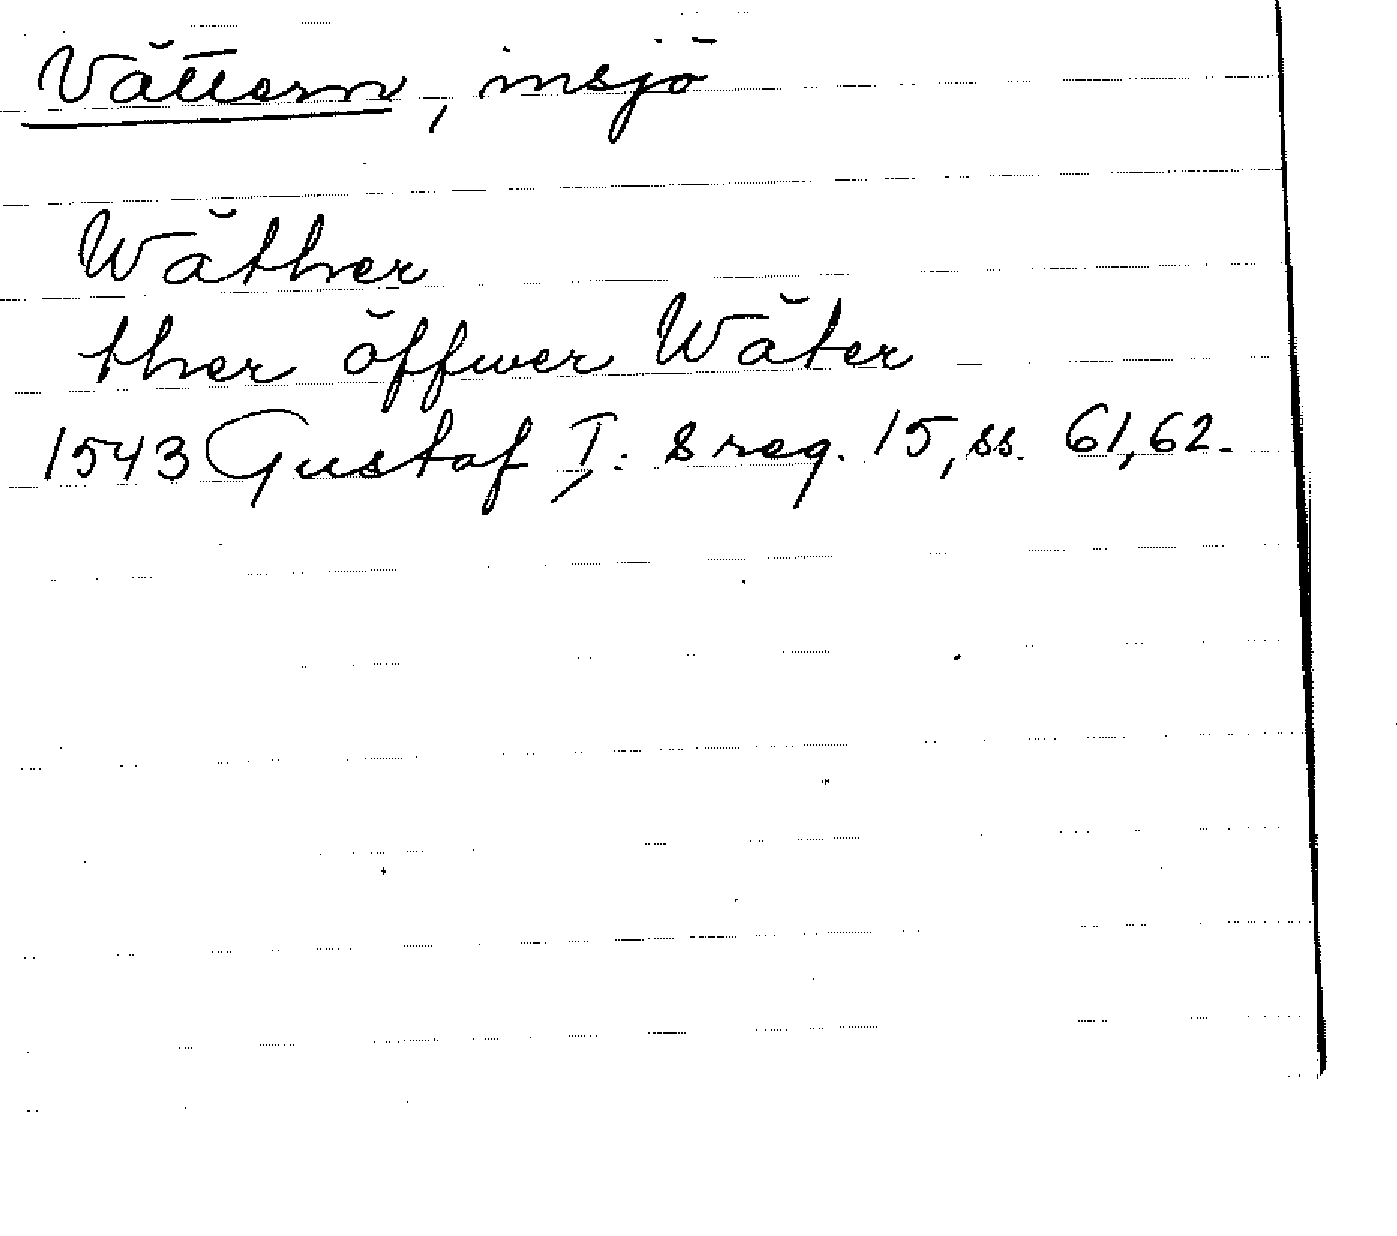 Vättern, insjö
Wäther
ther öffwer Wäter
1543 Gustaf I:s reg. 15, ss. 61, 62.